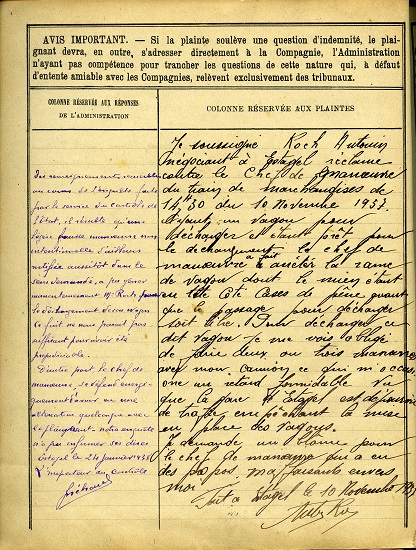 AVIS IMPORTANT. — Si la plainte soulève une question d'indemnité, le plai-
gnant devra, en outre, s'adresser directement à la Compagnie, l'Administration
n'ayant pas compétence pour trancher les questions de cette nature qui, à défaut
d'entente amiable avec les Compagnies, relèvent exclusivement des tribunaux.
COLONNE RÉSERVÉE AUX RÉPONSES
DE L'ADMINISTRATION
Des renseignements recueillis
au cours de l'enquête faite
par le service du contrôle de
l'État, il résulte qu'une
légère fausse manœuvre non
intentionnelle
rectifiée aussitôt dans le
sens demandé, a pu gêner
momentanément Mr Roch pour
le déchargement de son wagon
Ce fait ne nous paraît pas
suffisant pour avoir été
préjudiciable.
D'autre part le chef de
manœuvre se défend énergi-
quement d'avoir eu une
altercation quelconque avec
le plaignant. notre enquête
n'a pu confirmer ses dires
Estagel le 24 janvier 1938
L'inspecteur du contrôle
COLONNE RÉSERVÉE AUX PLAINTES
Je soussigné Roch Antonin
négociant à Estagel réclame
contre le Chef de manœuvre
du train de marchandises de
14h30 du 10 Novembre 1937.
Ayant un wagon pour
décharger et étant prêt pour
le déchargement le chef de
manœuvre a fait arrêter la rame
de wagon dont le mien était
en tête côté cases de pierre quand
que le passage pour décharger
doit être. Pour décharger ce
dit wagon je me vois obligé
de faire deux ou trois manœuvres
avec mon camion ce qui m'occasi
onne un retard formidable vu
que la gare d'Estagel est dépourvue
de place empêchant la mise
en place des wagons.
Je demande un blâme pour
le chef de manœuvre qui a eu
des propos malfaisants envers
moi
Fait à Estagel le 10 Novembre 1937